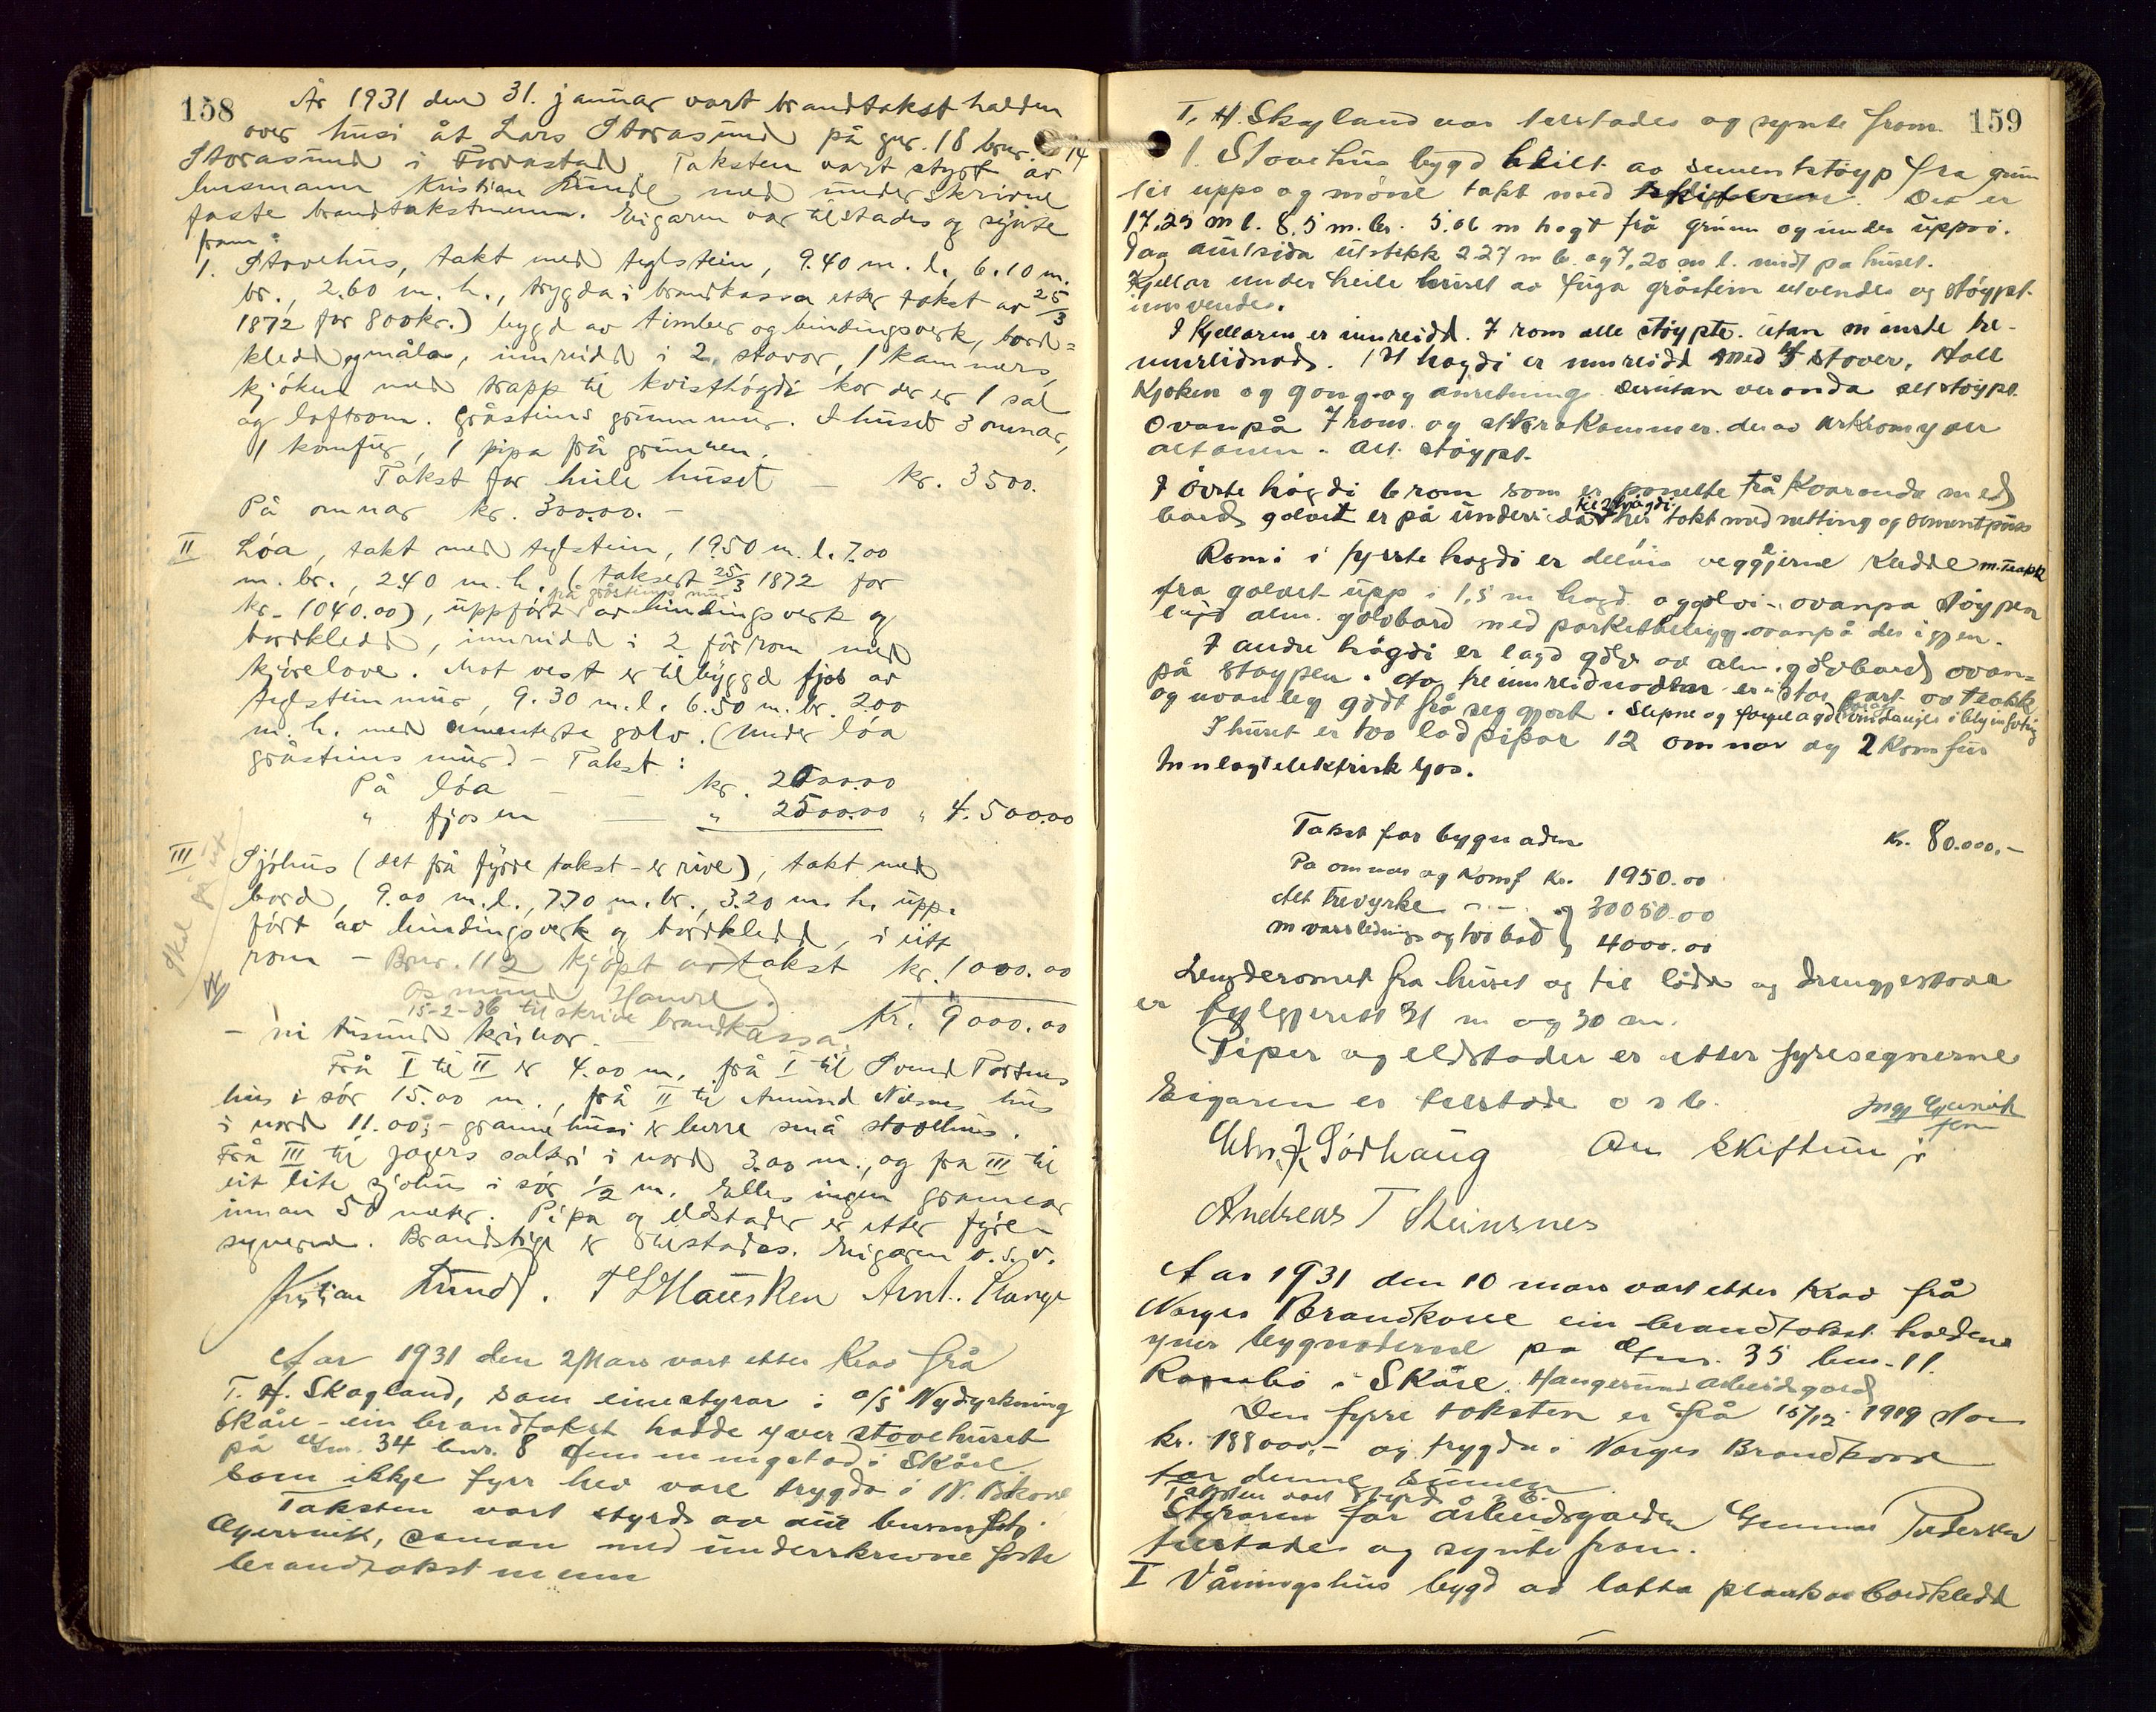 158
År 1931 den 31. januar vart brandtakst halden
over husi åt Lars Storasund på gnr. 18 bnr. 14
Storasund i Torvastad. Taksten vart styrt av
husmann Kristian Lunde med underskrivne
faste brandtakstmenn. Eigaren var tilstades og synte
fram:
1. Stovehus, takt med teglstein, 9.40 m. l., 6.10 m.
br., 2.60 m. h., trygda i brandkassa etter takst av 25/3
1872 for 800 kr.) bygd av timber og bindingsverk, bord=
kledd og måla, innreidd i 2 stovor, 1 kammers,
kjøken med trapp til kvisthøgdi kor der er 1 sal
og loftrom. Gråsteins grunnmur. I huset 3 omnar,
1 komfyr, 1 pipa frå grunnen.
Takst for heile huset — kr. 3500.
På omnar kr. 300.00. -
II Løa, takt med teglstein, 19.50 m. l. 7.00
m. br., 2.40 m. h. (taksert 25/3 1872 for
kr. 1040.00), uppført på gråsteins mur av bindingsverk og
bordkledd, innreidd i 2 fôrrom med
kjøreløve. Mot vest er tilbyggd fjos av
teglsteinmur, 9.30 m. l. 6.50 m. br. 2.00
m. h. med cementerte golv. (Under løa
gråsteins mur). - Takst:
På løa — — kr. 2000.00
" fjosen — " 2500.00 " 4.500.00
III Sjøhus (det frå fyrre takst - er rive), takt med
bord, 9.00 m. l., 7.70 m. br., 3.20 m. h. upp-
ført av bindingsverk og bordkledd, i eitt
rom - Bnr. 112 kjøpt av takst kr. 1000.00
Osmund Havre
15-2-36 til skrive brandkassa. Kr. 9000.00
- ni tusund krunor. -
Frå I til II er 4.00 m., frå I til Svend Torsens
hus i sør 15.00 m., frå II til Amund Nilsens hus
i nord 11.00; - grannehusi er berre små stovehus.
Frå III til Jagers salteri i nord 3.00 m., og fra III til
eit lite sjøhus i sør 1/2 m. Elles ingen grannear
innan 50 meter. Pipa og eldstader er etter fyre-
segnerne. Brandstige er tilstades. Eigaren o. s. v.
Kristian Lunde. Arnt. Stange
Aar 1931 den 2 Mars vart etter krav frå
T. H. Skagland, som einestyrar i a/s Nydyrkning
Skåre - ein brandtakst halde yver stovehuset
på Gnr. 34 bnr. 8 i Skåre.
som ikkje fyrr hev vore trygda i N. Bkasse
Taksten vart styrd av
saman med underskrivne faste
brandtakstmenn
159
T. H. Skagland var tilstades og synte fram.
1. Stovehus bygd heilt av sementstøyp fra grun
til upps og møne takt med skiferen. Det er
17.25 m l. 8.5 m. br. 5.06 m høgt frå grunn og under uppsi.
utstekk 2.27 m b. og 7.20 m l. midt på huset.
Kjellar under heile huset av fuga gråstein utvendes og støypt
innvendes.
I Kjellaren er innreidd. 7 rom alle støypte. utan minste tre-
innreidnad. I 1st høgdi er innreidd med 4 stover, Hall
Kjøken og gang og anretning. Desutan veranda alt støypt.
Ovanpå 7 rom. og
altanen. Alt støypt.
I øvste høgdi 6 rom som er panelte frå kvarande med
bord golvet er på undersida til 2 høgdi takt med netting og sementpuss
Romi i fyrste høgdi er delvis veggjerne kledde m. teakk
fra golvet upp i 1,5 m høgd og golvi ovanpa støypen
lagd alm. golvbord med parketbelegg ovanpå der igjen.
I andre høgdi er lagd golv av alm. golvbord ovan=
på støypen. treinnreidnaden er i stor part av teakk
og uvanleg godt frå seg gjort.
I huset er two ladpipor 12 omnar og 2 Komfür
Innlagt elektrisk ljos.
Takst for bygnaden Kr. 80.000.-
På omnar og Komf Kr. 1950.00
Alt trevyrke - - - " 30050.00
m vassledning og two bad " 4000.00
Lengderomet fra huset og til løda og drengjestova
er fylgjerett 31 m og 30 m.
Piper og eldstader er etter fyresegnerne
Eigaren er tilstade o s b.
Chr. J. Sørhaug
Andreas T Steinsnes
Aar 1931 den 10 mars vart etter krav frå
Norges Brandkasse ein brandtakst haldene
yver bygnaderne på Gnr. 35 bnr. 11.
i Skåre. Haugesunds arbeidsgard
Den fyrre taksten er frå 15/12 1919 stor
kr. 188000,- og trygda i Norges Brandkasse
for denne summen
Taksten vart styrd o b.
Styraren for arbeidsgarden Gunnar Pedersen
tilstades og synte fram.
I Våningshus bygd av lafta plankar bordkledd